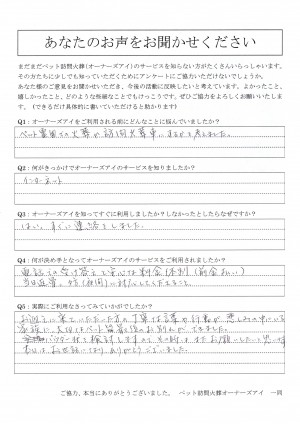 あなたのお声をお聞かせください
まだまだペット訪問火葬(オーナーズアイ)のサービスを知らない方がたくさんいらっしゃいます。
その方たちに少しでも知っていただくためにアンケートにご協力いただけないでしょうか。
あなた様のご意見をお聞かせいただき、今後の活動に反映したいと考えています。よかったこと、
嬉しかったこと、どのような些細なことでもけっこうです。ぜひご協力をよろしくお願いいたしま
す。(できるだけ具体的に書いていただけると助かります)
Q1:オーナーズアイをご利用される前にどんなことに悩んでいましたか?
ペット霊園での火葬か訪問火葬車にするかを考えました。
Q2:何がきっかけでオーナーズアイのサービスを知りましたか?
インターネット
Q3:オーナーズアイを知ってすぐに利用しましたか?しなかったとしたらなぜですか?
はい、すぐに連絡をしました。
Q4:何が決め手となってオーナーズアイをご利用されましたか?
電話での受け答え
当日
Q5:実際にご利用なさってみていかがでしたか?
お迎えに来ていただいた方の丁寧な言葉や行動が悲しみの中にいる
家族に
お別れができました。
ありがとうございました。
ご協力、本当にありがとうございました。 ペット訪問火葬オーナーズアイ 一同